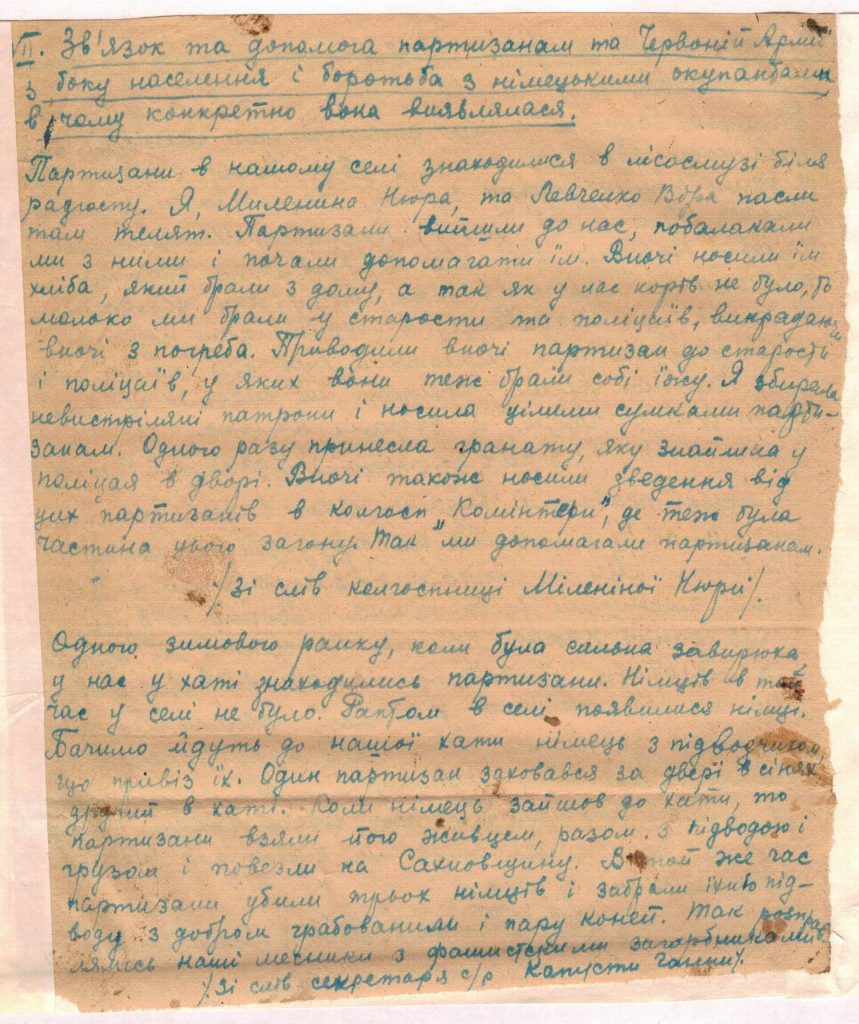 VII. Зв'язок та допомога партизанам та Червоній Армії
з боку населення і боротьба з німецькими окупантами
в чому конкретно вона виявлялася.
Партизани в нашому селі знаходилися в лісосмузі біля
радгоспу. Я, Миленина Нюра, та Левченко Вєра пасли
там телят. Партизани вийшли до нас, побалакали
ми з ними і почали допомагати їм. Вночі носили їм
хліба, який брали з дому, а так як у нас корів не було, то
молоко ми брали у старости та поліцаїв, викрадаючи
вночі з погреба. Приводили вночі партизан до старости
і поліцаїв, у яких вони теж брали собі їжу. Я збирала
невистріляні патрони і носила цілими сумками парти-
занам. Одного разу принесла гранату, яку знайшла у
поліцая в дворі. Вночі також носили зведення від
цих партизанів в колгосп "Комінтерн", де теж була
частина цього загону. Так ми допомагали партизанам.
/Зі слів колгоспниці Міленіної Нюри/.
Одного зимового ранку, коли була сильна завирюха
у нас у хаті знаходились партизани. Німців в той
час у селі не було. Раптом в селі появилися німці.
Бачимо йдуть до нашої хати німець з підводчиком,
що привіз їх. Один партизан заховався за двері в сінях
другий в хаті. Коли німець зайшов до хати, то
партизани взяли його живцем, разом з підводою і
грузом і повезли на Сахновщину. В той же час
партизани убили трьох німців і забрали їхню під-
воду з добром грабованим і пару коней. Так розправ
лялись наші месники з фашистськими загарбниками
/Зі слів секретаря с/р Капусти Ганни/.